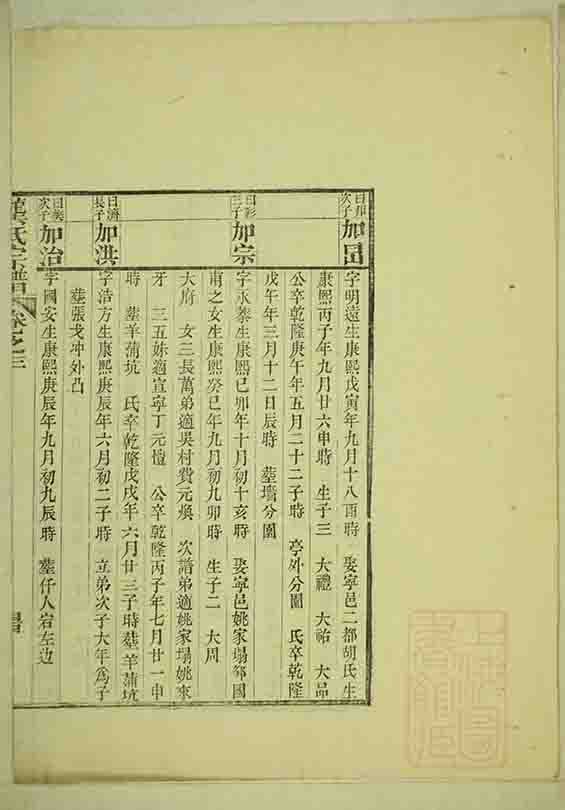 次子
加
字明遠生康熙戊寅年九月十八酉時 娶寧邑二都胡氏生
康熙丙子年九月廿六申時 生子三 大禮 大祐 大品
公卒乾隆庚午年五月二十二子時 亭外分圖 氏卒乾隆
戊午年三月十二日辰時 墓壪分圖
曰彩三子
加宗
字永泰生康熙己卯年十月初十亥時 娶寧邑姚家塌鄒國
甫之女生康熙癸巳年九月初九卯時 生子二 大周
大府 女三長萬弟適吳村費元煥 次諧弟適姚家塌姚來
牙 三五姊適宣寧丁元愷 公卒乾隆丙子年七月廿一申
時 墓羊蒲坑 氏卒乾隆戊戌年六月廿三子時墓羊蒲坑
曰濟長子
加洪
字浩方生康熙庚辰年六月初二子時 立弟次子大年為子
墓張戈冲外凸
次子
加治
字國安生康熙庚辰年九月初九辰時 墓仟人宕左边
氏宗譜 卷之三